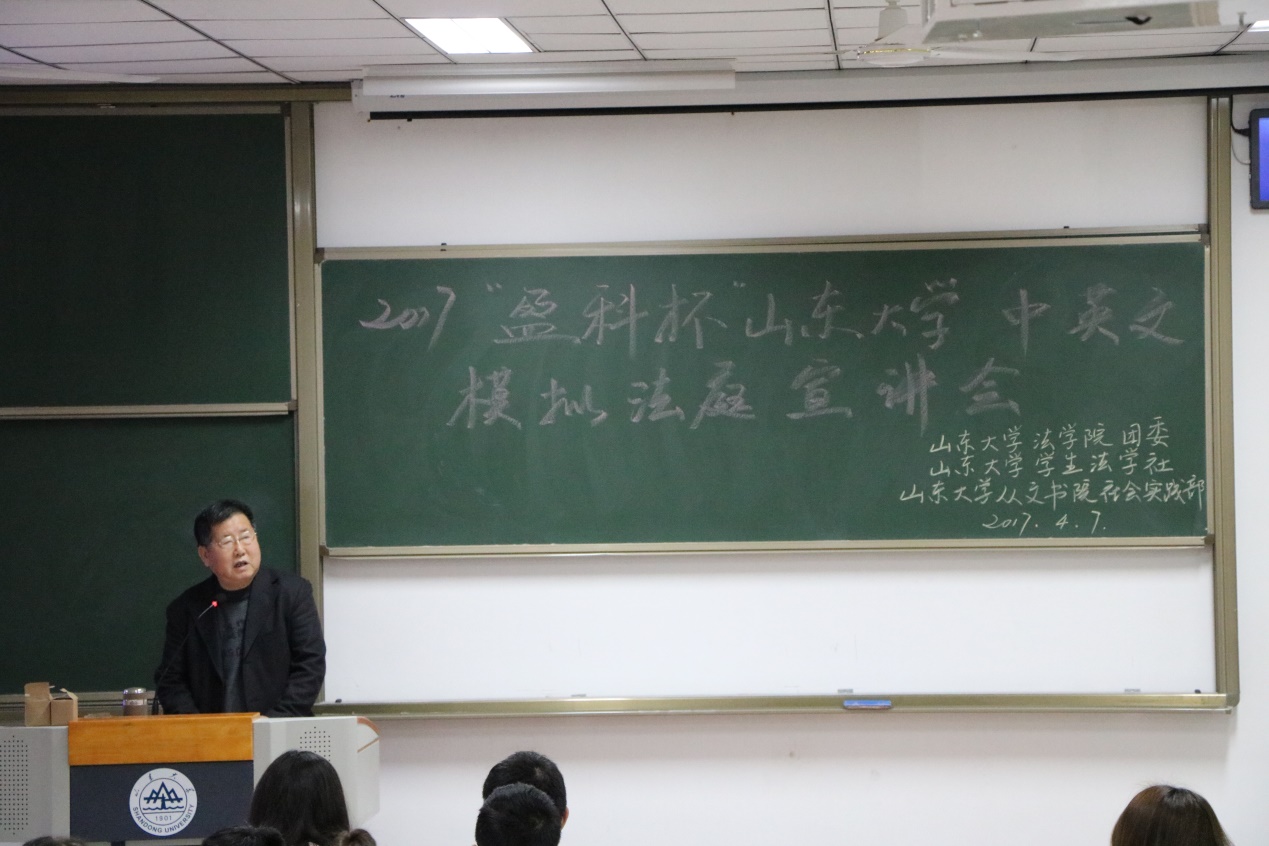 2017“盈科杯”山东大学 中英文
模拟法庭宣讲会
山东大学法学院团委
山东大学学生法学社
山东大学从文书院社会实践部
2017.4.7.
SHANDONG UNIVERSITY
1901